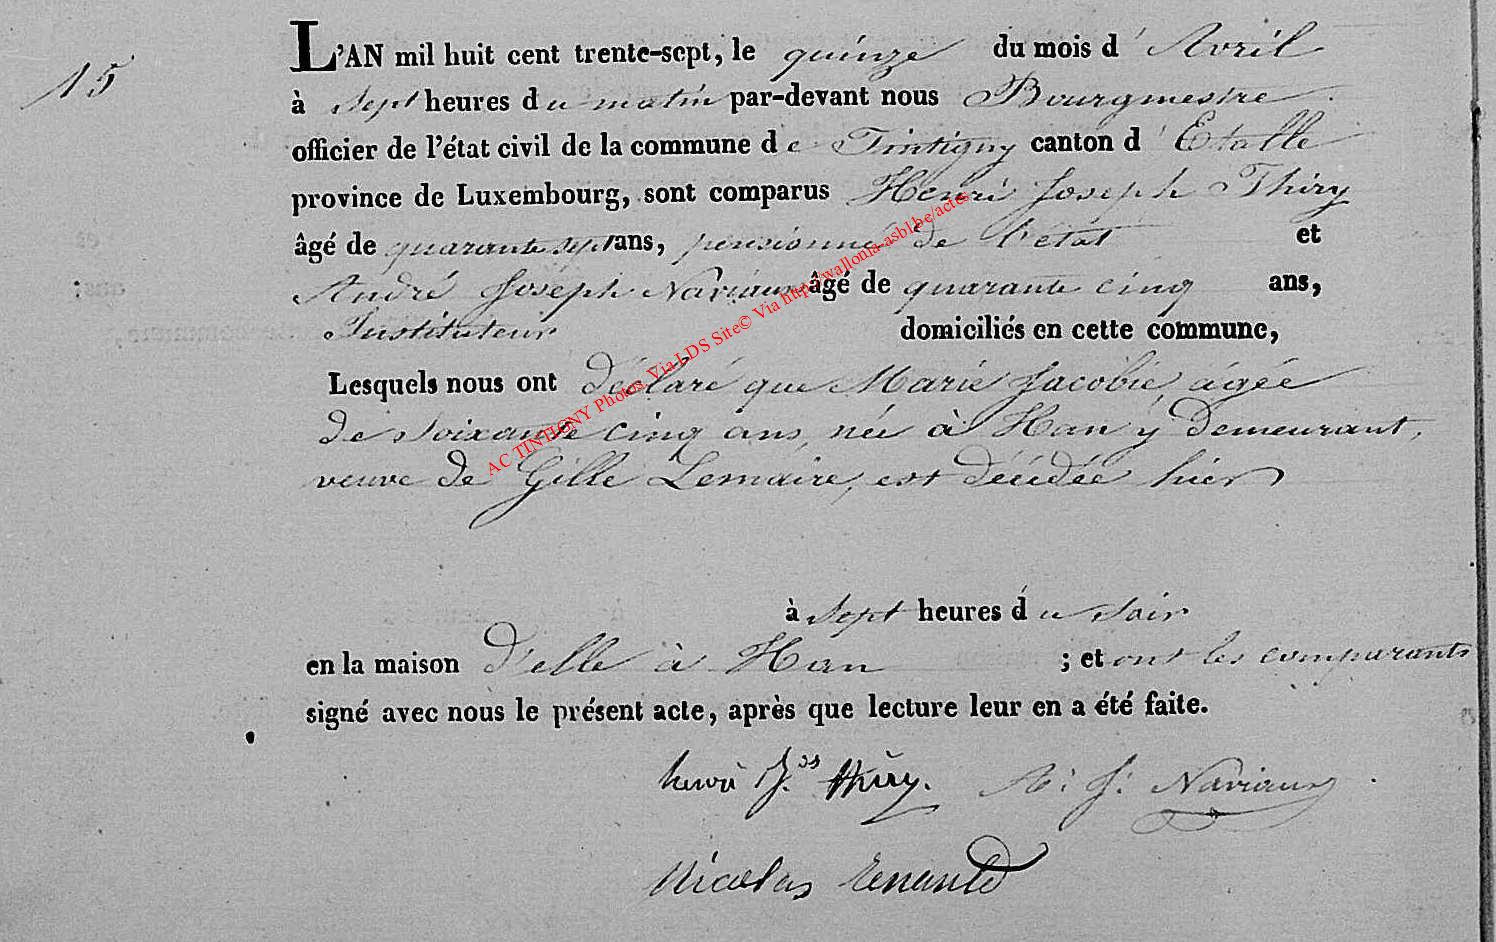 15
L'AN mil huit cent trente-sept, le quinze du mois d'Avril
à sept heures du matin par-devant nous Bourgmestre
officier de l'état civil de la commune de Tintigny canton d'Etalle
province de Luxembourg, sont comparus Henri Joseph Thiry
âgé de quarante sept ans, pensionné de l'état et
André Joseph Naviaux âgé de quarante cinq ans,
Instituteur domiciliés en cette commune,
Lesquels nous ont déclaré que Marie Jacobie âgée
de soixante cinq ans, née à Han y demeurant,
veuve de Gille Lemaire, est décédée hier
à sept heures du soir
en la maison d'elle à Han ; et ont les comparants
signé avec nous le présent acte, après que lecture leur en a été faite.
henri Jos thiry. A. J. Naviaux
Nicolas Renauld
AC TINTIGNY Photos Via LDS Site© Via http://wallonia-asbl.be/actes